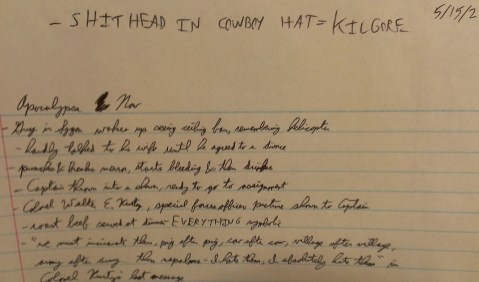 - SHITHEAD IN COWBOY HAT = KILGORE 5/15/2
Apocalypse Now
- Guy in wakes up seeing ceiling fan, remembering helicopter
- hardly talked to his wife until he agreed to a divorce
- punches & breaks mirror, starts bleeding & then drinks
- Captain thrown into a shower, ready to go to assignment
- Colonel Walter E. Kurtz, special forces officer picture shown to Captain
- roast beef served at dinner - EVERYTHING symbolic
- "we must incinerate them, pig after pig, cow after cow, village after village,
army after army them napalm - I hate them, I absolutely hate them" in
Colonel Kurtz's last message